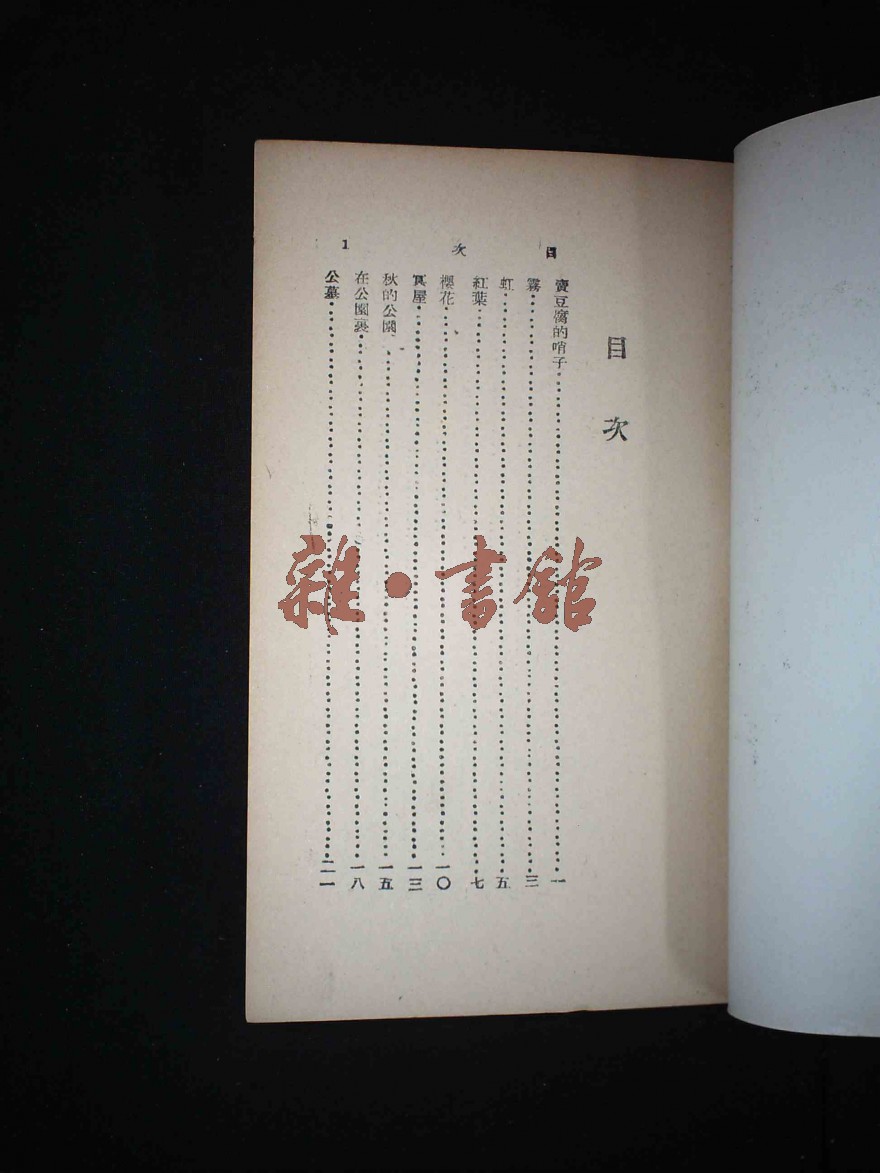 目次
1
目次
賣豆腐的哨子……一
霧……三
虹……五
紅葉……七
櫻花……一〇
冥屋……一三
秋的公園……一五
在公園裏……一八
公墓……二一
雜·書館